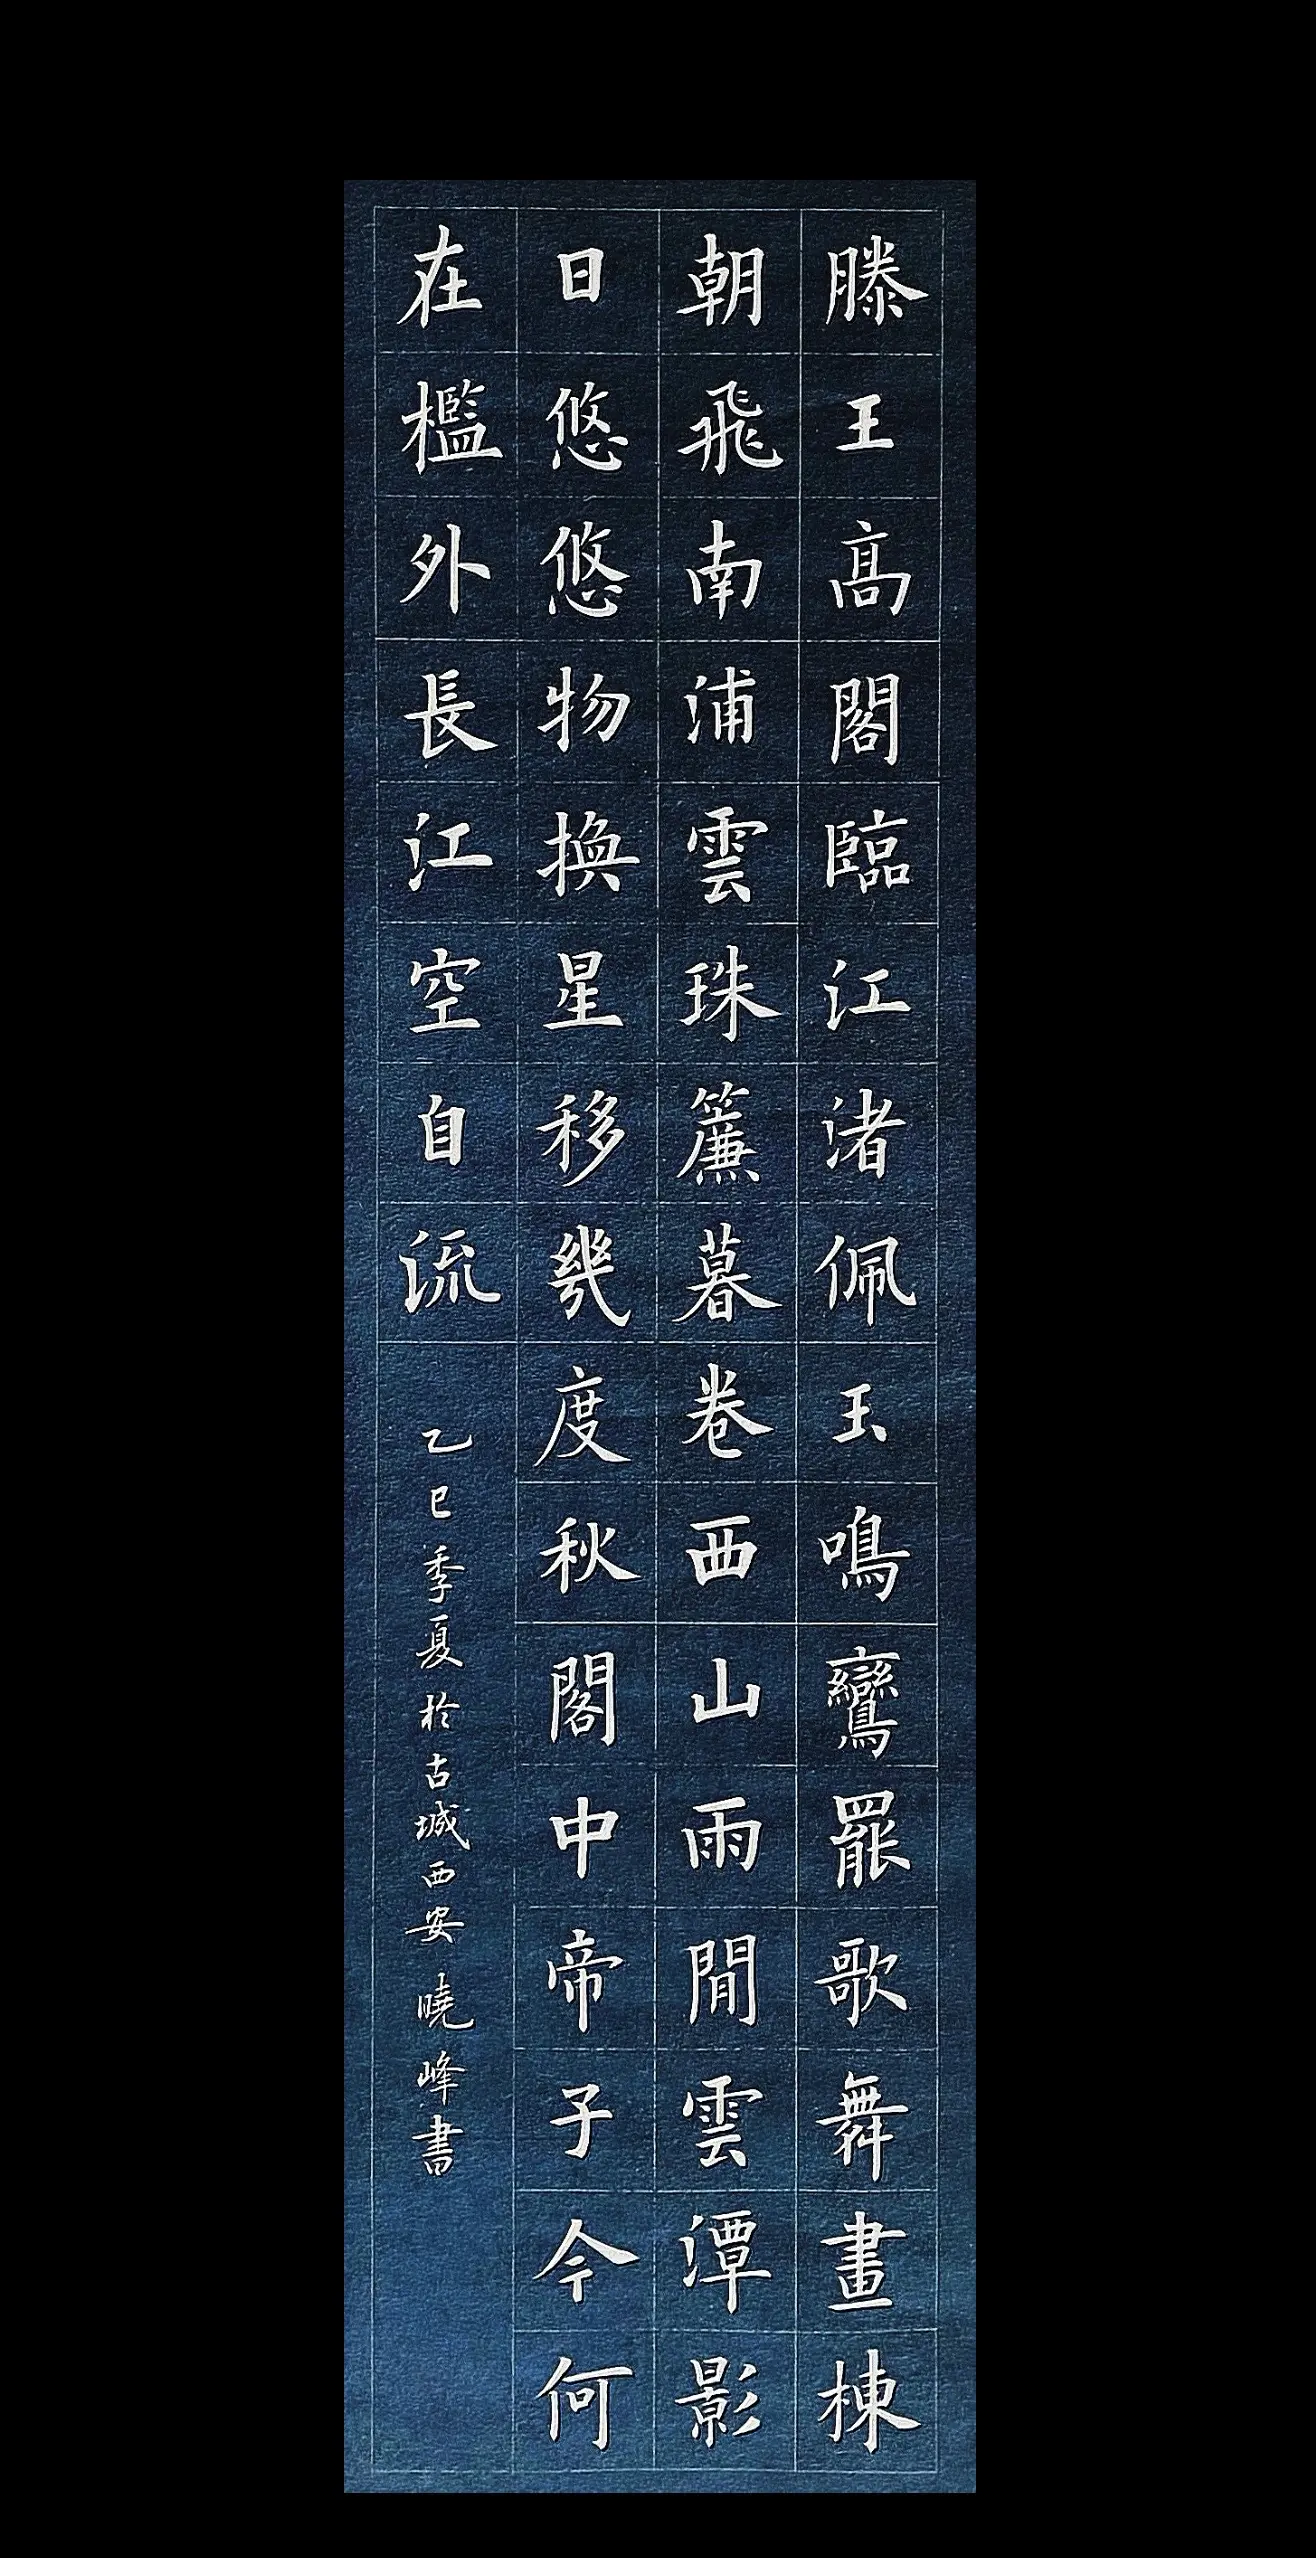 滕王高閣臨江渚佩玉鳴鸞罷歌舞畫棟
朝飛南浦雲珠簾暮卷西山雨閒雲潭影
日悠悠物換星移幾度秋閣中帝子今何
在檻外長江空自流
乙巳季夏於古城西安曉峰書